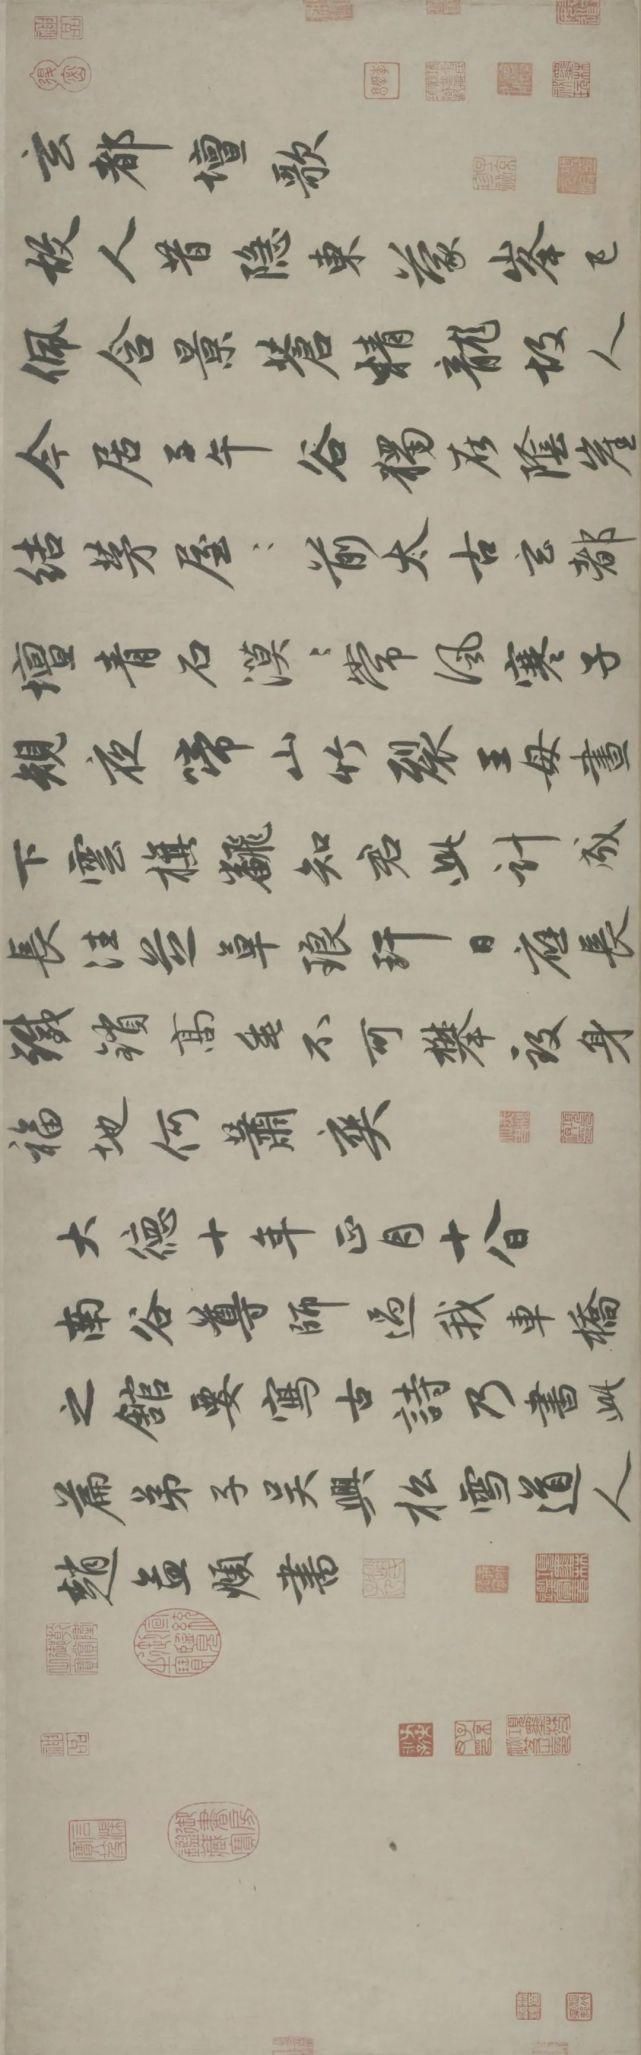 玄都壇歌
故人昔隐東蒙峯已
佩含景蒼精龍故人
今居子午谷獨在陰崖
結茅屋〻前太古玄都
壇青石漠〻常風寒子
規夜啼山竹裂王母晝
下雲旗飜知君此計成
長往芝草琅玕日應長
鐵鎖高垂不可攀致身
福地何蕭爽
大德十年正月十八日
南谷尊師過我車橋
之館要寫古詩乃書此
篇弟子吴興松雪道人
趙孟頫書